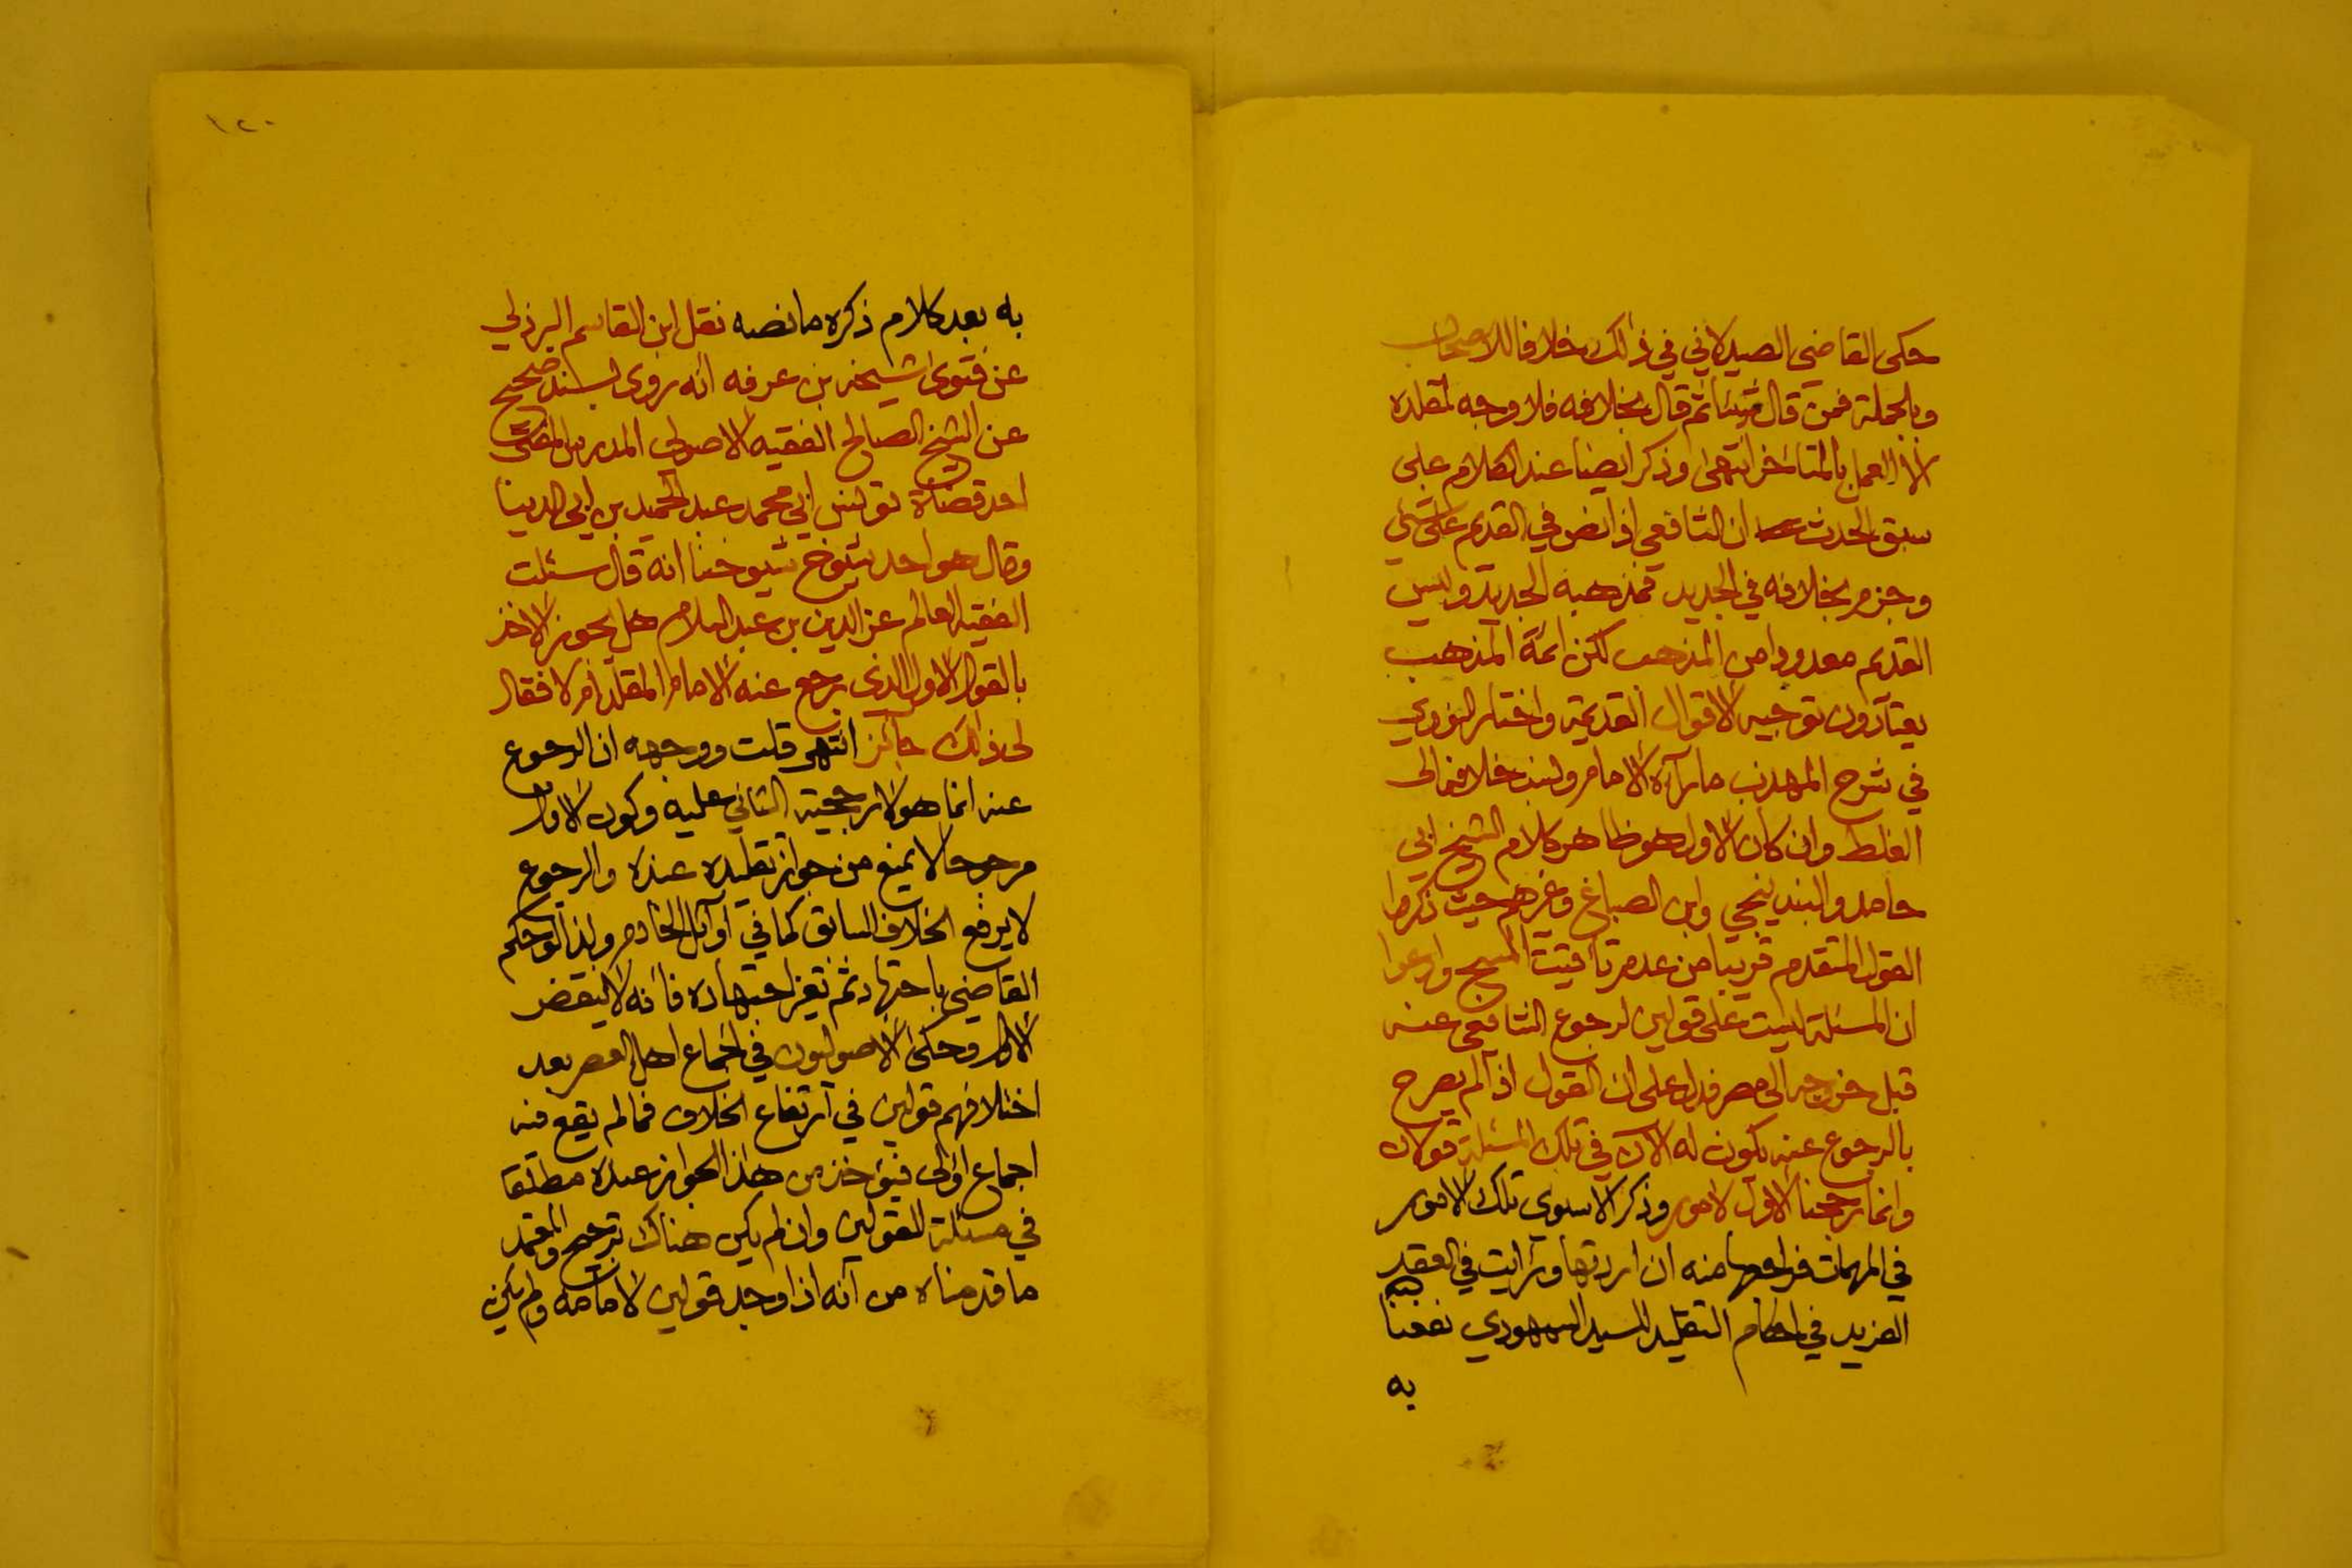 حكى القاضي الصيدلاني في ذلك خلافا للاصحاب
وبالجملة فمن قال شيئا ثم قال بخلافه فلا وجه لمقلده
الا العمل بالمتاخر انتهى وذكر ايضا عند الكلام على
سبق الحدث ان الشافعي اذا نص في القديم على شئ
وجزم بخلافه في الجديد فمذهبه الجديد وليس
القديم معدودا من المذهب لكن ائمة المذهب
يعتادون توجيه الاقوال القديمة واختار النووي
في شرح المهذب ما رآه الامام ونسب خلافه الى
الغلط وان كان الاول هو ظاهر كلام الشيخ ابي
حامد والبندنيجي وابن الصباغ وغيرهم حيث ذكروا
القول المتقدم قريبا من عدم تاقيت المسح وادعوا
ان المسئلة ليست على قولين لرجوع الشافعي عنه
قبل خروجه الى مصر فدل على ان القول اذا لم يصرح
بالرجوع عنه يكون له الان في تلك المسئلة قولان
وانما رجحنا الاول لامور وذكر الاسنوي تلك الامور
في المهمات فراجعها منه ان اردتها ورايت في العقد
الفريد في احكام التقليد للسيد السمهودي نفعنا الله
به
١٢٠
به بعد كلام ذكره ما نصه نقل ابن القاسم البرزلي
عن فتوى شيخه بن عرفه انه روى بسند صحيح
عن الشيخ الصالح الفقيه الاصولي المدرس المفتي
احد قضاة تونس ابي محمد عبد الحميد بن ابي الدينا
وقال هو احد شيوخ شيوخنا انه قال سئلت
الفقيه العالم عز الدين بن عبد السلام هل يجوز الاخذ
بالقول الاول الذي رجع عنه الامام المقلد ام لا فقال
لي ذلك جائز انتهى قلت ووجهه ان الرجوع
عنه انما هو لارجحية الثاني عليه وكون الاول
مرجوحا لا يمنع من جواز تقليده عنده والرجوع
لا يرفع الخلاف السابق كما في اوائل الخادم ولذا لو حكم
القاضي باجتهاد ثم تغير اجتهاده فانه لا ينقض
الاول وحكى الاصوليون في اجماع اهل العصر بعد
اختلافهم قولين في ارتفاع الخلاف فما لم يقع فيه
اجماع اولى فيؤخذ من هذا الجواز عنده مطلقا
في مسئلة القولين وان لم يكن هناك ترجيح والمعتمد
ما قدمناه من انه اذا وجد قولين لامامه ولم يكن